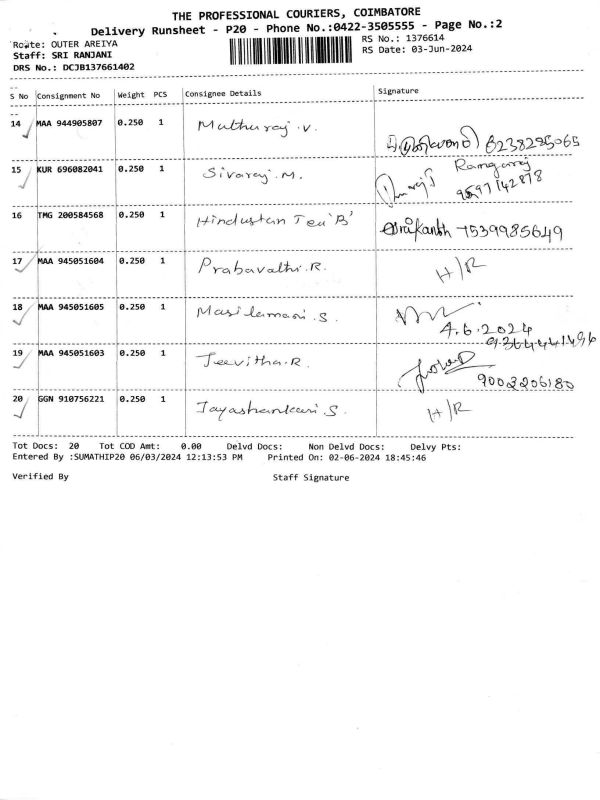 THE PROFESSIONAL COURIERS, COIMBATORE
Delivery Runsheet - P20 - Phone No.:0422-3505555 - Page No.:2
Route: OUTER AREIYA
RS No.: 1376614
Staff: SRI RANJANI
RS Date: 03-Jun-2024
DRS No.: DCJB137661402
S No Consignment No Weight PCS Consignee Details Signature
14 MAA 944905807 0.250 1 Muthuraj.V.
8238285065
15 KUR 696082041 0.250 1 Sivaraj.M. Ramgarraj
9597142878
16 TMG 200584568 0.250 1 Hindustan Tea 'B' Srikanth 7539985649
17 MAA 945051604 0.250 1 Prabavathi.R. H/R
18 MAA 945051605 0.250 1 Masilamani.S.
4.6.2024
9364441496
19 MAA 945051603 0.250 1 Jeevitha.R.
9002206180
20 GGN 910756221 0.250 1 Jayashankari.S. H/R
Tot Docs: 20 Tot COD Amt: 0.00 Delvd Docs: Non Delvd Docs: Delvy Pts:
Entered By :SUMATHIP20 06/03/2024 12:13:53 PM Printed On: 02-06-2024 18:45:46
Verified By Staff Signature